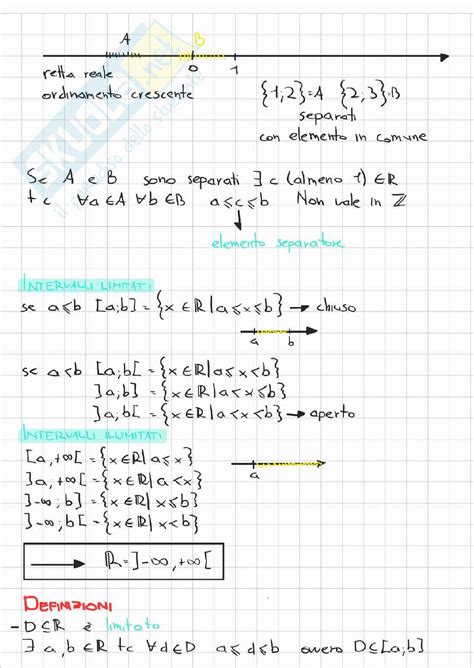 A B
0 1
retta reale
ordinamento crescente
{1,2}=A {2,3}=B
separati
con elemento in comune
SKUOLA.net
il paradiso dello studente
Se A e B sono separati ∃ c (almeno 1) ∈ℝ
tc ∀a∈A ∀b∈B a⩽c⩽b Non vale in ℤ
elemento separatore
INTERVALLI LIMITATI
se a⩽b [a;b] = {x∈ℝ|a⩽x⩽b} → chiuso
a b
se a<b [a;b[ = {x∈ℝ| a⩽x<b}
]a;b] = {x∈ℝ|a<x⩽b}
]a,b[ = {x∈ℝ|a<x<b} → aperto
INTERVALLI ILLIMITATI
[a,+∞[ = {x∈ℝ|a⩽x}
]a,+∞[ = {x∈ℝ|a<x}
]-∞;b] = {x∈ℝ| x⩽b}
]-∞;b[ = {x∈ℝ|x<b}
a
→ ℝ=]-∞,+∞[
DEFINIZIONI
-D⊆ℝ è limitato
∃ a,b∈ℝ tc ∀d∈D a⩽d⩽b ovvero D⊆[a;b]